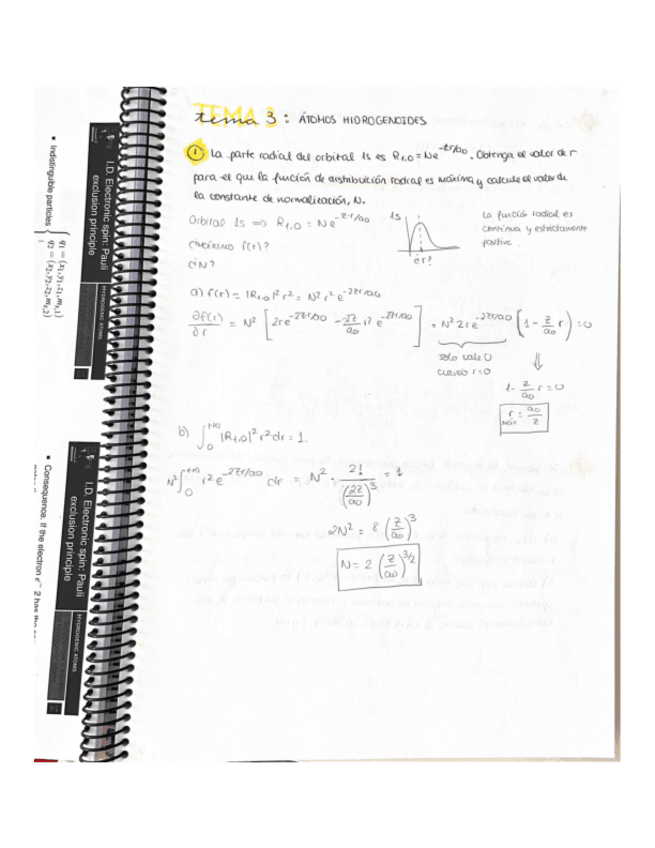 TEMA 3
tema 3 : ÁTOMOS HIDROGENOIDES
1 La parte radial del orbital 1s es R1,0 = Ne^-Zr/a0. Obtenga el valor de r
para el que la función de distribución radial es máxima y calcule el valor de
la constante de normalización, N.
Orbital 1s ⇒ R1,0 = N e^-Z·r/a0
¿máximo f(r)?
¿N?
1s
¿r?
La función radial es
continua y estrictamente
positiva.
a) f(r) = |R1,0|² r² = N² r² e^-2Zr/a0
∂f(r)/∂r = N² [2re^-2Zr/a0 - 2Z/a0 r² e^-2Zr/a0] = N² 2r e^-2Zr/a0 (1 - Z/a0 r) = 0
solo vale 0
cuando r=0
1 - Z/a0 r = 0
r máx = a0/Z
b) ∫0^+∞ |R1,0|² r² dr = 1
N² ∫0^+∞ r² e^-2Zr/a0 dr = N² 2!/(2Z/a0)³ = 1
2N² = 8 (Z/a0)³
N = 2 (Z/a0)^3/2
I.D. Electronic spin: Pauli
exclusion principle
HYDROGENIC ATOMS
• Indistinguible particles { q1 = (x1, y1, z1, ms,1)
q2 = (x2, y2, z2, ms,2)
I.D. Electronic spin: Pauli
exclusion principle
HYDROGENIC ATOMS
• Consequence. If the electron e⁻ 2 has the